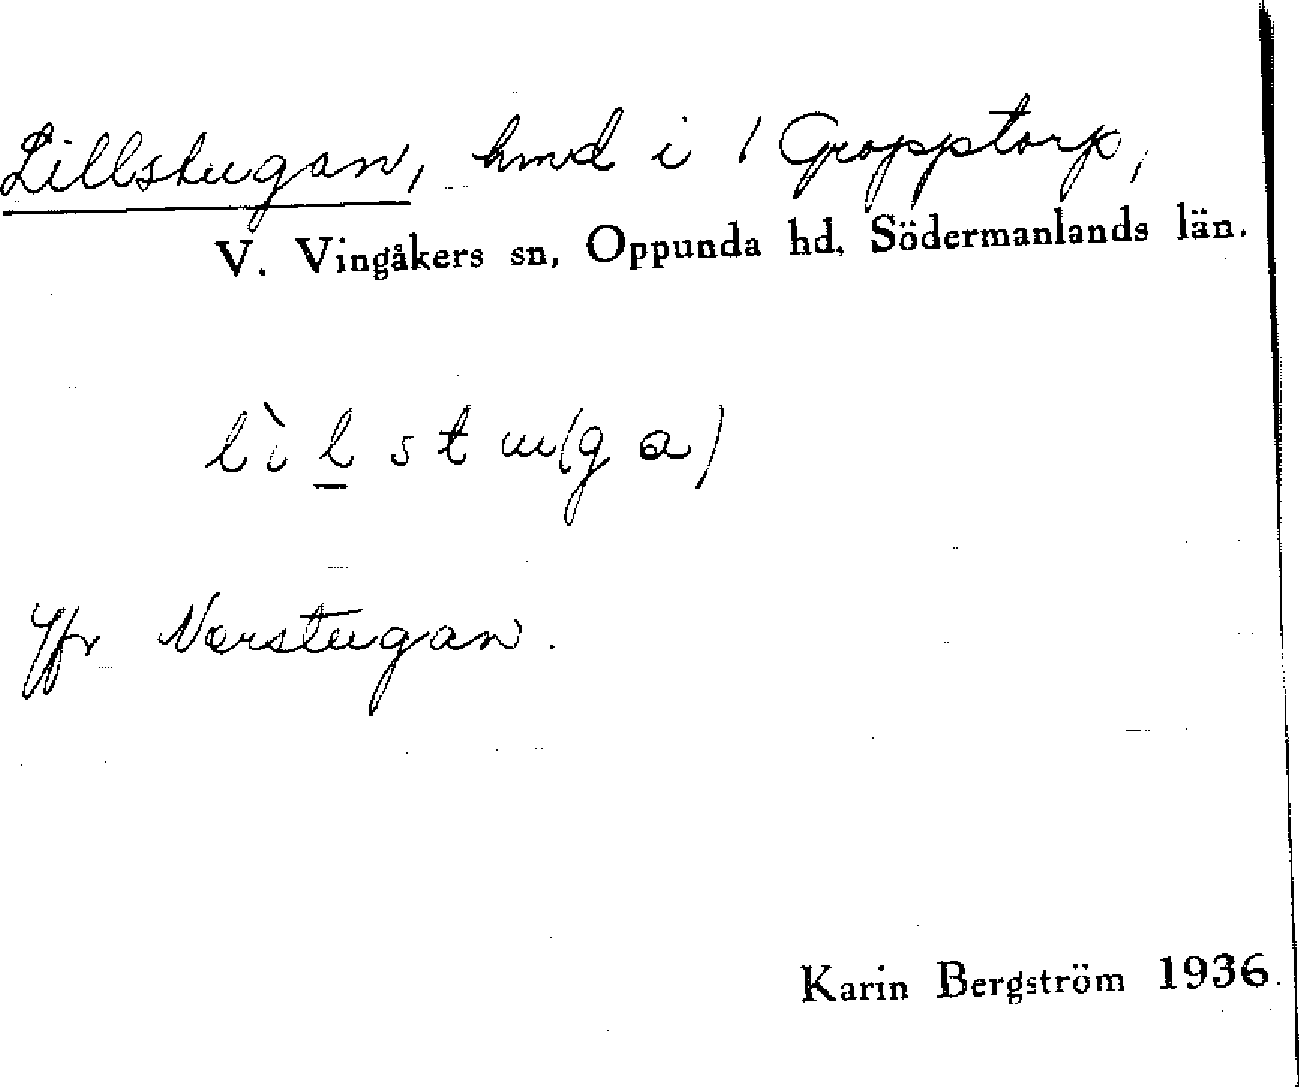 Lillstugan, hmd i 1 Gropptorp,
V. Vingåkers sn, Oppunda hd, Södermanlands län.
lìl̲stu(ga)
Jfr Norstugan.
Karin Bergström 1936.